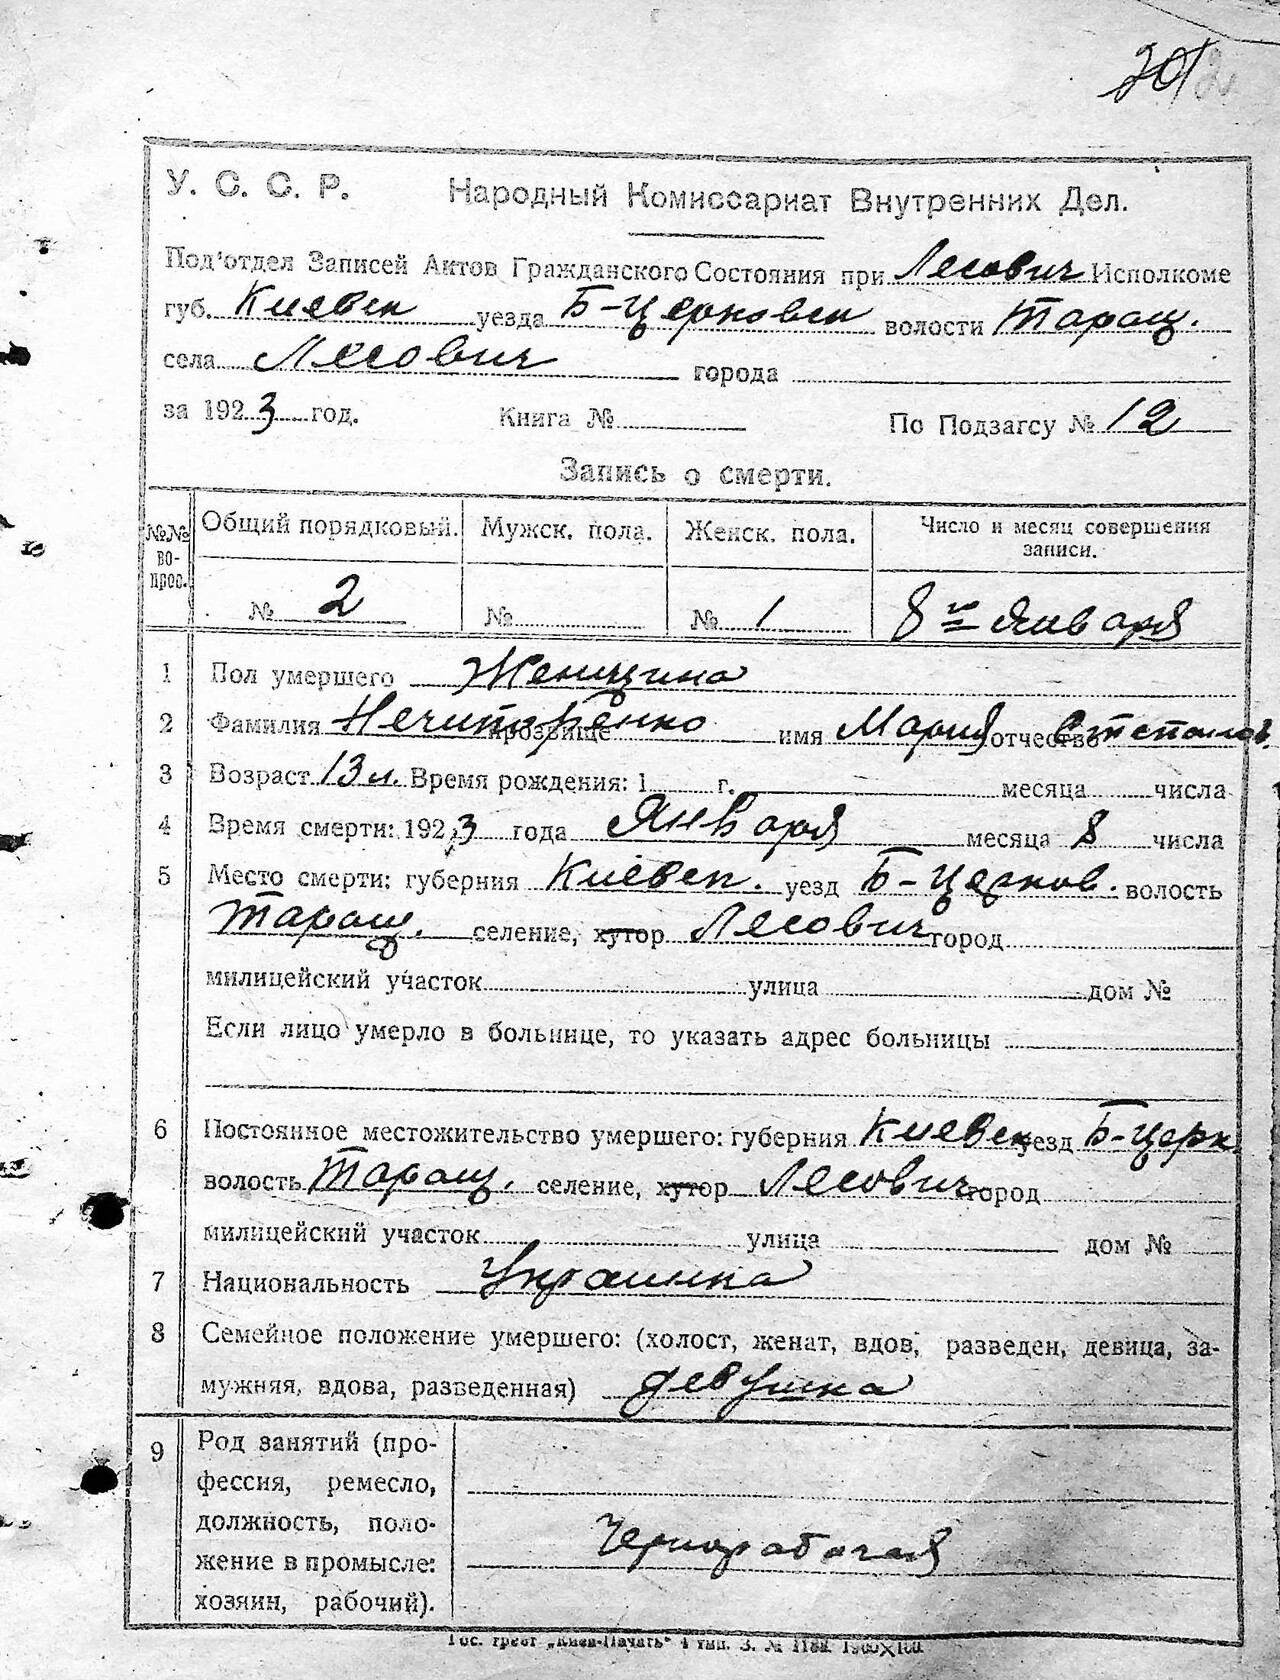 201
У. С. С. Р. Народный Комиссариат Внутренних Дел.
Под'отдел Записей Актов Гражданского Состояния при Лесович Исполкоме
губ. Киевск уезда Б-Церковск волости Таращ.
села Лесович города
за 1923 год. Книга № По Подзагсу № 12
Запись о смерти.
№№ во- прос. Общий порядковый. Мужск. пола. Женск. пола. Число и месяц совершения записи.
№ 2 № № 1 8го Января
1 Пол умершего Женщина
2 Фамилия Нечипоренко прозвище имя Мария отчество Степанов.
3 Возраст 13 л. Время рождения: 1 г. месяца числа
4 Время смерти: 1923 года Января месяца 8 числа
5 Место смерти: губерния Киевск. уезд Б-Церков. волость
Таращ. селение, хутор Лесович город
милицейский участок улица дом №
Если лицо умерло в больнице, то указать адрес больницы
6 Постоянное местожительство умершего: губерния Киевск уезд Б-Церк
волость Таращ. селение, хутор Лесович город
милицейский участок улица дом №
7 Национальность Украинка
8 Семейное положение умершего: (холост, женат, вдов, разведен, девица, за-
мужняя, вдова, разведенная) девушка
9 Род занятий (про-
фессия, ремесло,
должность, поло-
жение в промысле:
хозяин, рабочий).
Чернорабочая
Гос. трест „Киев-Печать" 4 тип. З. №